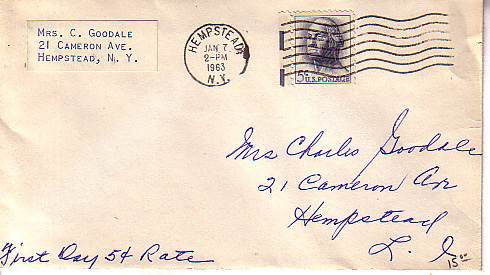 MRS. C. GOODALE
21 CAMERON AVE.
HEMPSTEAD, N. Y.
HEMPSTEAD
JAN 7
2-PM
1963
N.Y.
5¢ U.S. POSTAGE
Mrs Charles Goodale
21 Cameron Av
Hempstead
L. I.
First Day 5¢ Rate
15.00